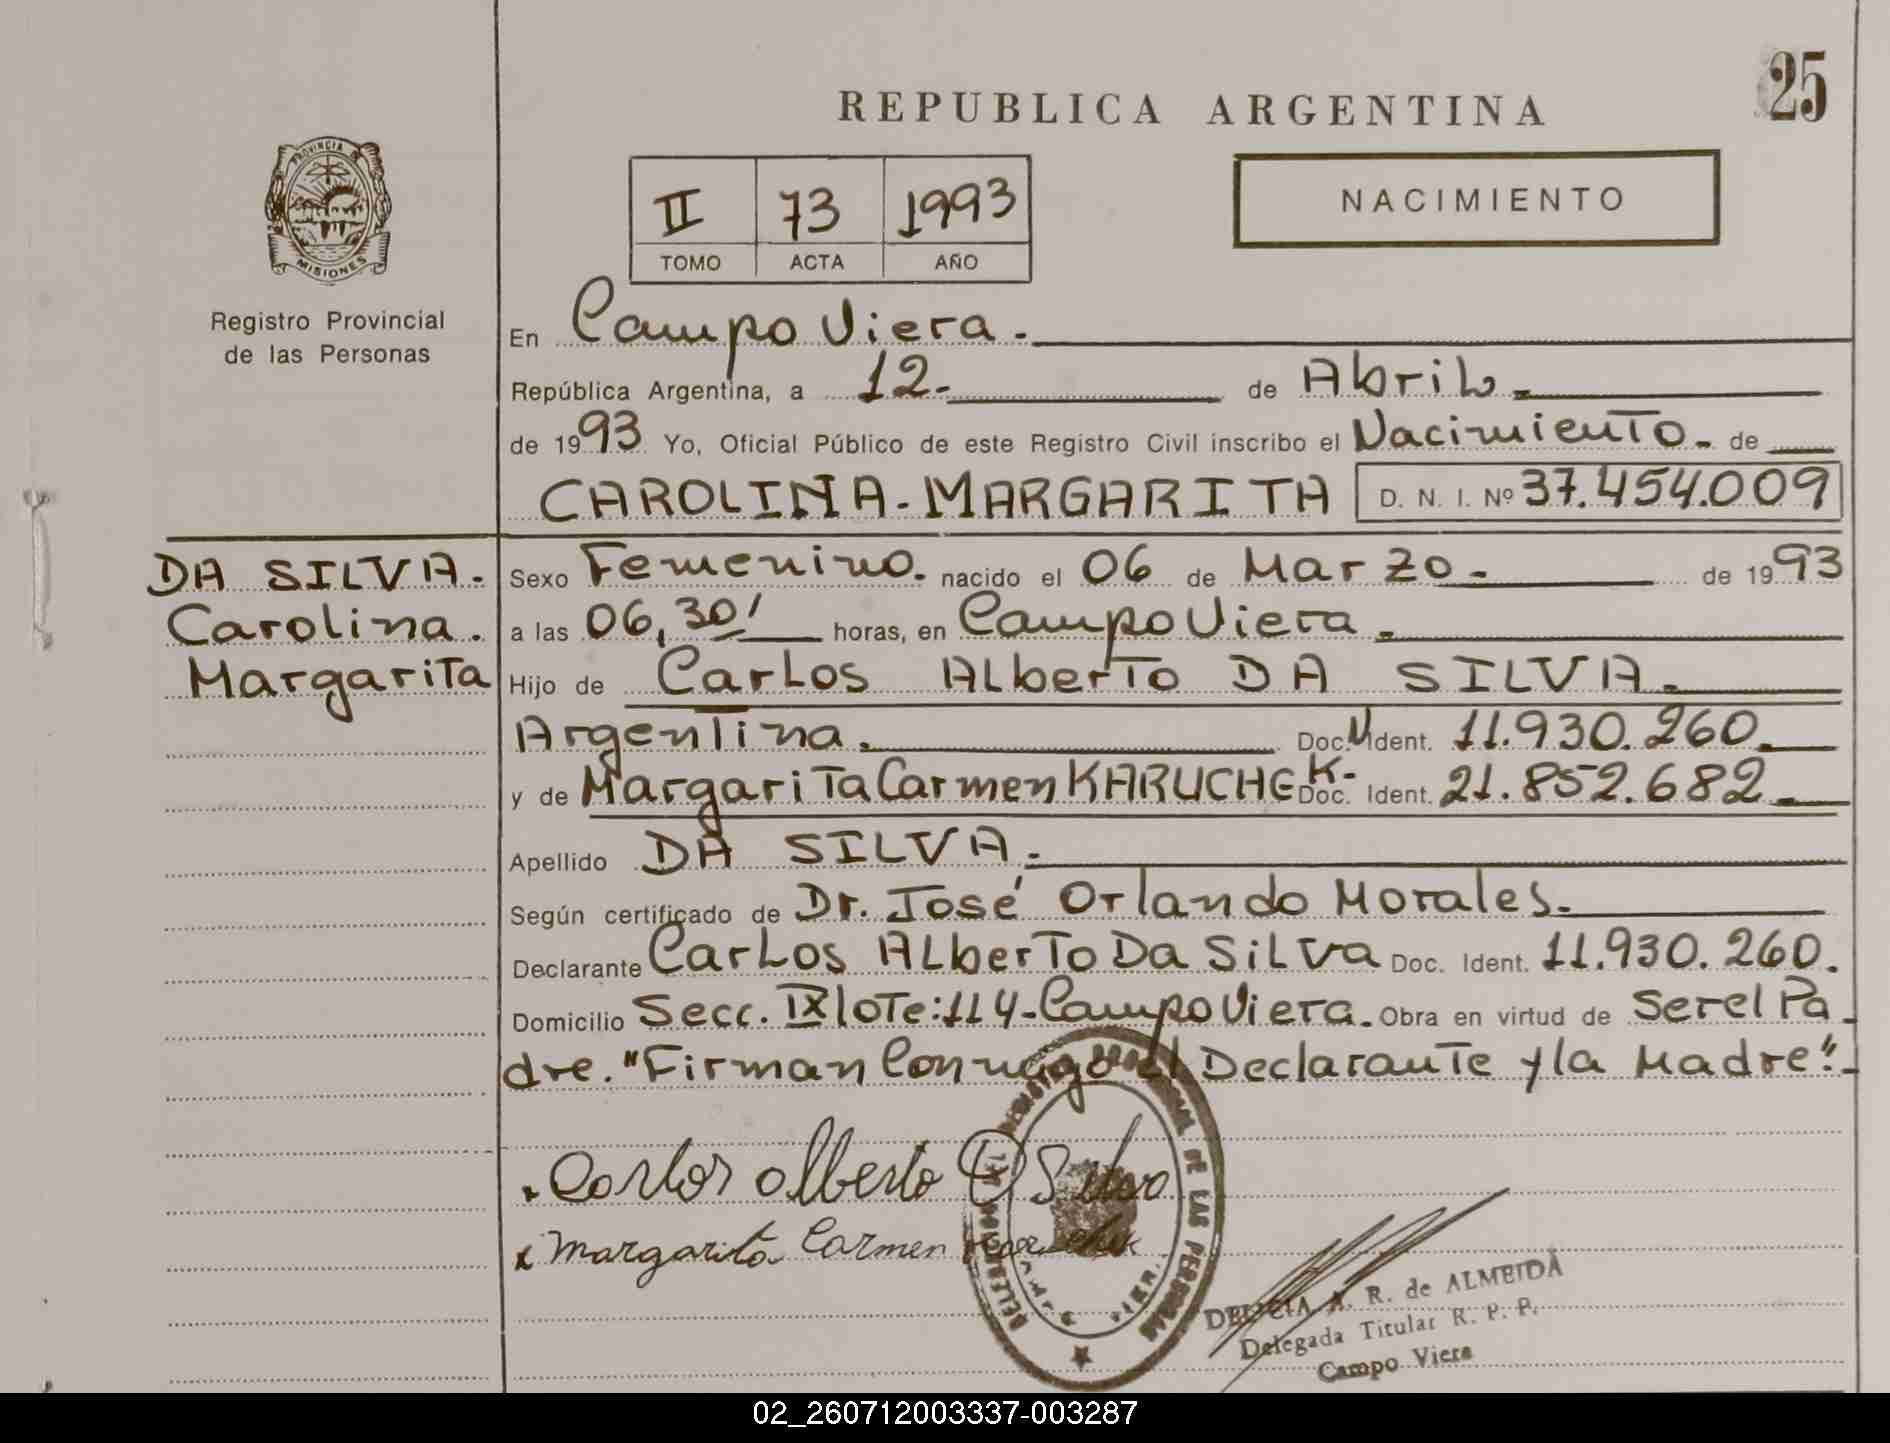 25
REPUBLICA ARGENTINA
NACIMIENTO
II 73 1993
TOMO ACTA AÑO
PROVINCIA DE
MISIONES
Registro Provincial
de las Personas
En Campo Viera.
República Argentina, a 12- de Abril.
de 1993 Yo, Oficial Público de este Registro Civil inscribo el Nacimiento. de
CAROLINA-MARGARITA D. N. I. Nº 37.454.009
DA SILVA.
Carolina.
Margarita
Sexo Femenino. nacido el 06 de Marzo. de 1993
a las 06,30' horas, en Campo Viera.
Hijo de Carlos Alberto DA SILVA.
Argentina. Doc. N Ident. 11.930.260
y de Margarita Carmen KARUCHEK- Doc. Ident. 21.852.682
Apellido DA SILVA.
Según certificado de Dr. José Orlando Morales.
Declarante Carlos Alberto Da Silva Doc. Ident. 11.930.260.
Domicilio Secc. IX lote:114-Campo Viera. Obra en virtud de Ser el Pa
dre. "Firman Conmigo el Declarante y la Madre".
Carlos Alberto D Silva
x Margarita Carmen
DE LAS PERSONAS
DELICIA A. R. de ALMEIDA
Delegada Titular R. P. P.
Campo Viera
02_260712003337-003287